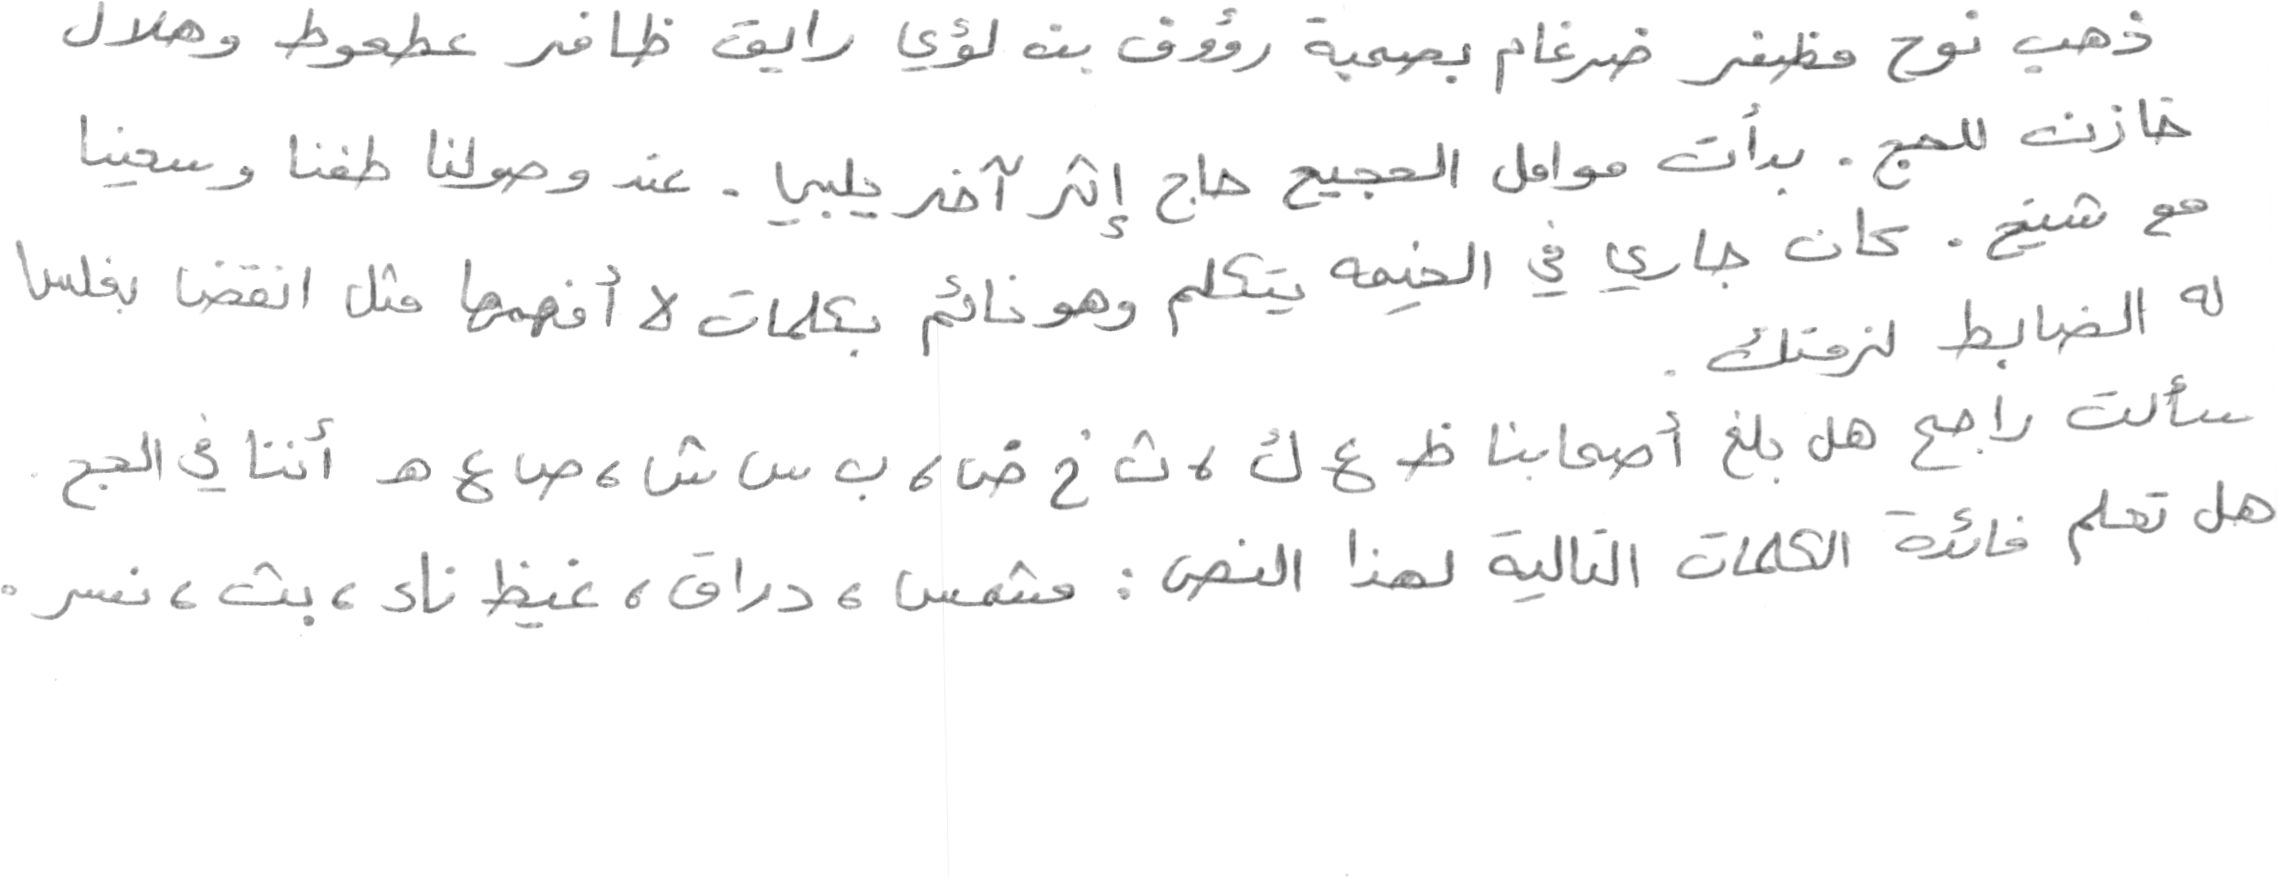 ذهب نوح مظفر ضرغام بصحبة رؤوف بن لؤي رايق ظافر عطعوط وهلال
خازن للحج . بدأت قوافل الحجيج حاج إثر آخر يلبي . عند وصولنا طفنا وسعينا
مع شيخ . كان جاري في الخيمه يتكلم وهو نائم بكلمات لا أفهمها مثل انقضا بفلسا
له الضابط لنرفتك .
سألت راجح هل بلغ أصحابنا ظ ع ك ، ث خ ض ، ب س ش ، ص ع هـ أننا في الحج .
هل تعلم فائدة الكلمات التالية لهذا النص : مشمس ، دراق ، غيظ ناء ، بث ، نسر .